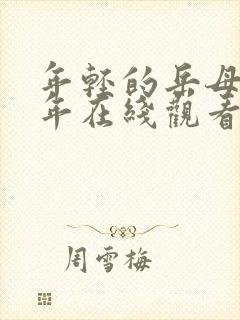 年轻的岳母
年在线觀看
周雪梅